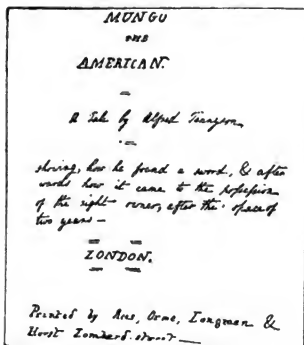 MUNGO
THE
AMERICAN.
A Tale by Alfred Tennyson
showing, how he found a sword, & after
wards how it came to the possession
of the right owner, after the space of
two years —
LONDON.
Printed by Rees, Orme, Longman &
Hurst Lombard street —